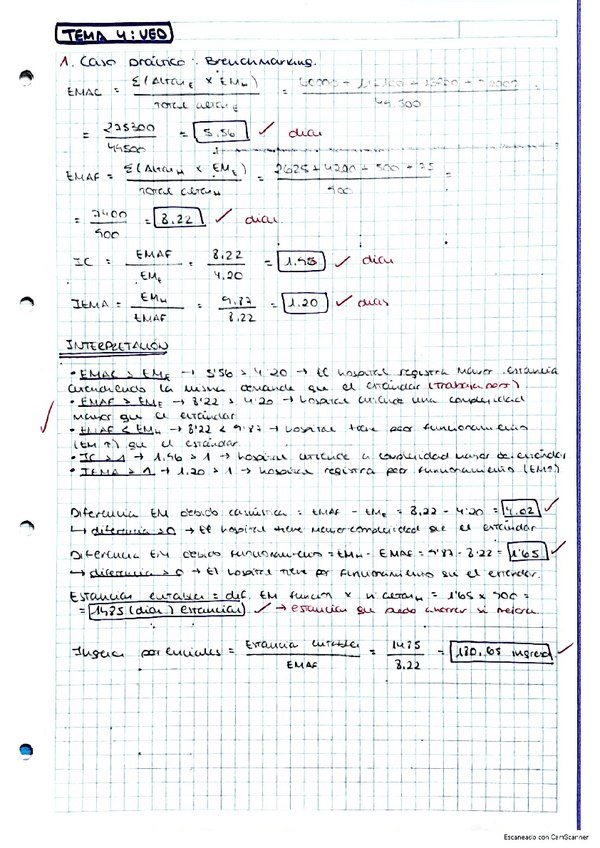 TEMA 4: VEO
1. Caso práctico: Brenchmarking.
EMAC = Σ(Altas E × EM H) / Total altas E =
49.500
= 275300 / 49500 = 5.56 ✓ días
EMAF = Σ(Altas H × EM E) / Total altas H = 2625 + 4200 + 500 + 75 / 900 =
= 7400 / 900 = 8.22 ✓ días
IC = EMAF / EM E = 8.22 / 4.20 = 1.96 ✓ días
IEMA = EM H / EMAF = 9.87 / 8.22 = 1.20 ✓ días
INTERPRETACIÓN
• EMAC > EM E → 5'56 > 4'20 → El hospital registra mayor estancia
atendiendo la misma demanda que el estándar (trabaja peor)
• EMAF > EM E → 8'22 > 4'20 → hospital atiende una complejidad
mayor que el estándar
• EMAF < EM H → 8'22 < 9'87 → hospital tiene peor funcionamiento
(EM ↑) que el estándar.
• IC > 1 → 1.96 > 1 → hospital atiende a complejidad mayor de estándar
• IEMA > 1 → 1.20 > 1 → hospital registra peor funcionamiento (EM↑)
Diferencia EM debido casuística = EMAF - EM E = 8.22 - 4'20 = 4.02 ✓
↳ diferencia > 0 → El hospital tiene mayor complejidad que el estándar
Diferencia EM debido funcionamiento = EM H - EMAF = 9'87 - 8.22 = 1'65 ✓
↳ diferencia > 0 → El hospital tiene peor funcionamiento que el estándar.
Estancias evitables = dif. EM función × nº altas H = 1'65 × 900 =
= 1485 (días) estancias ✓ → estancias que puedo ahorrar si mejora
Ingresos potenciales = Estancia evitables / EMAF = 1485 / 8.22 = 180.65 ingresos ✓
Escaneado con CamScanner